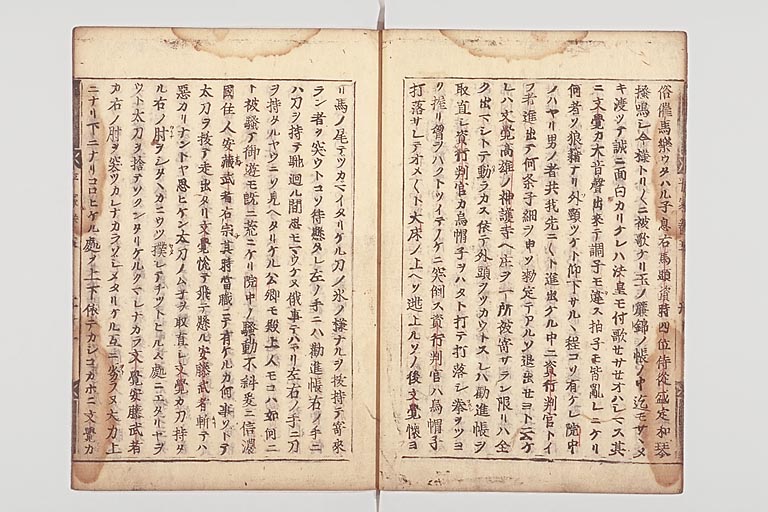 俗催馬樂ウタハル子息右馬頭資時四位侍從盛定和琴
搔鳴シ今樣トリ〳〵ニ被歌ケリ玉ノ簾錦ノ帳ノ中迄モサヽメ
キ渡ツテ誠ニ面白カリケレハ法皇モ付歌セサセオハシマス其
ニ文覺カ大音聲出來テ調子モ違ス拍子モ皆亂レニケリ
何者ソ狼藉ナリ外頸ツケト仰下サルヽ程コソ有ケレ院中
ノハヤリ男ノ者共我先ニト進出ケル中ニ資行判官トイ
フ者進出テ何条子細ヲ申ソ勅定テアルソ退出セヨト云ケ
レハ文覺高雄ノ神護寺ヘ庄ヲ一所被寄サラン限リハ全
ク出マシトテ動ラカス依テ外頭ヲツカウトスレハ勸進帳ヲ
取直シ資行判官カ烏帽子ヲハタト打テ打落シ拳ヲツヨ
ク握リ胷ヲハクトツイテノケニ突倒ス資行判官ハ烏帽子
打落サレテオメ〳〵ト大床ノ上ヘソ逃上ルソノ後文覺懷ヨ
リ馬ノ尾テツカマイタリケル刀ノ氷ノ樣ナルヲ拔持テ寄來
ラン者ヲ突ウトコソ待懸タレ左ノ手ニハ勸進帳右ノ手ニ
ハ刀ヲ持テ馳廻ル間思モマウケヌ俄事テハアリ左右ノ手ニ刀
ヲ持タルヤウニソ見ヘタリケル公卿モ殿上人モコハ如何ニ
ト被騷テ御遊モ既ニ荒ニケリ院中ノ騷動不斜爰ニ信濃
國住人安藤武者右宗其時當職ニテ有ケルカ何事ソトテ
太刀ヲ拔テ走出タリ文覺悦テ飛テ懸ル安藤武者斬テハ
惡カリナントヤ思ヒケン太刀ノムネヲ取直シ文覺カ刀持タ
ル右ノ肘ヲシタヽカニウツ撲レテチツトヒルム處ニエタリヤヲ
ウト太刀ヲ捨テソクンタリケルクマレナカラ文覺安藤武者
カ右ノ肘ヲ突ツカレナカラソシメタリケル互ニ劣ラヌ大力上
ニナリ下ニナリコロヒケル處ヲ上下依テカシコカホニ文覺カ